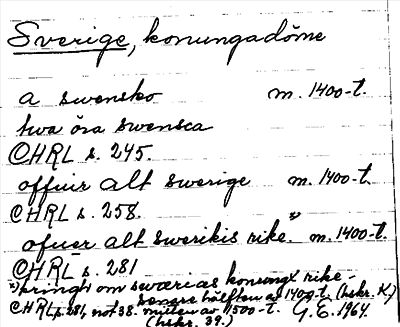 Sverige, konungadöme
a swensko m. 1400-t.
twa öra swensca
CHRL s. 245.
offuir alt swerige m. 1400-t.
CHRL s. 258.
ofuer alt swerikis rike.*) m. 1400-t.
CHRL s. 281
*) kringh om swærias konungx rike -
senare hälften av 1400-t. (hskr. K.)
CHRL s. 281, not 38. mitten av 1500-t. G.E. 1964.
(hskr. 39.)